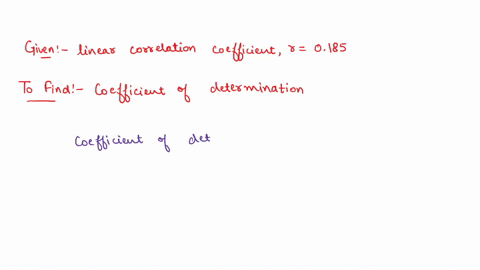 Given:- linear correlation coefficient, r = 0.185
To Find:- Coefficient of determination
Coefficient of det